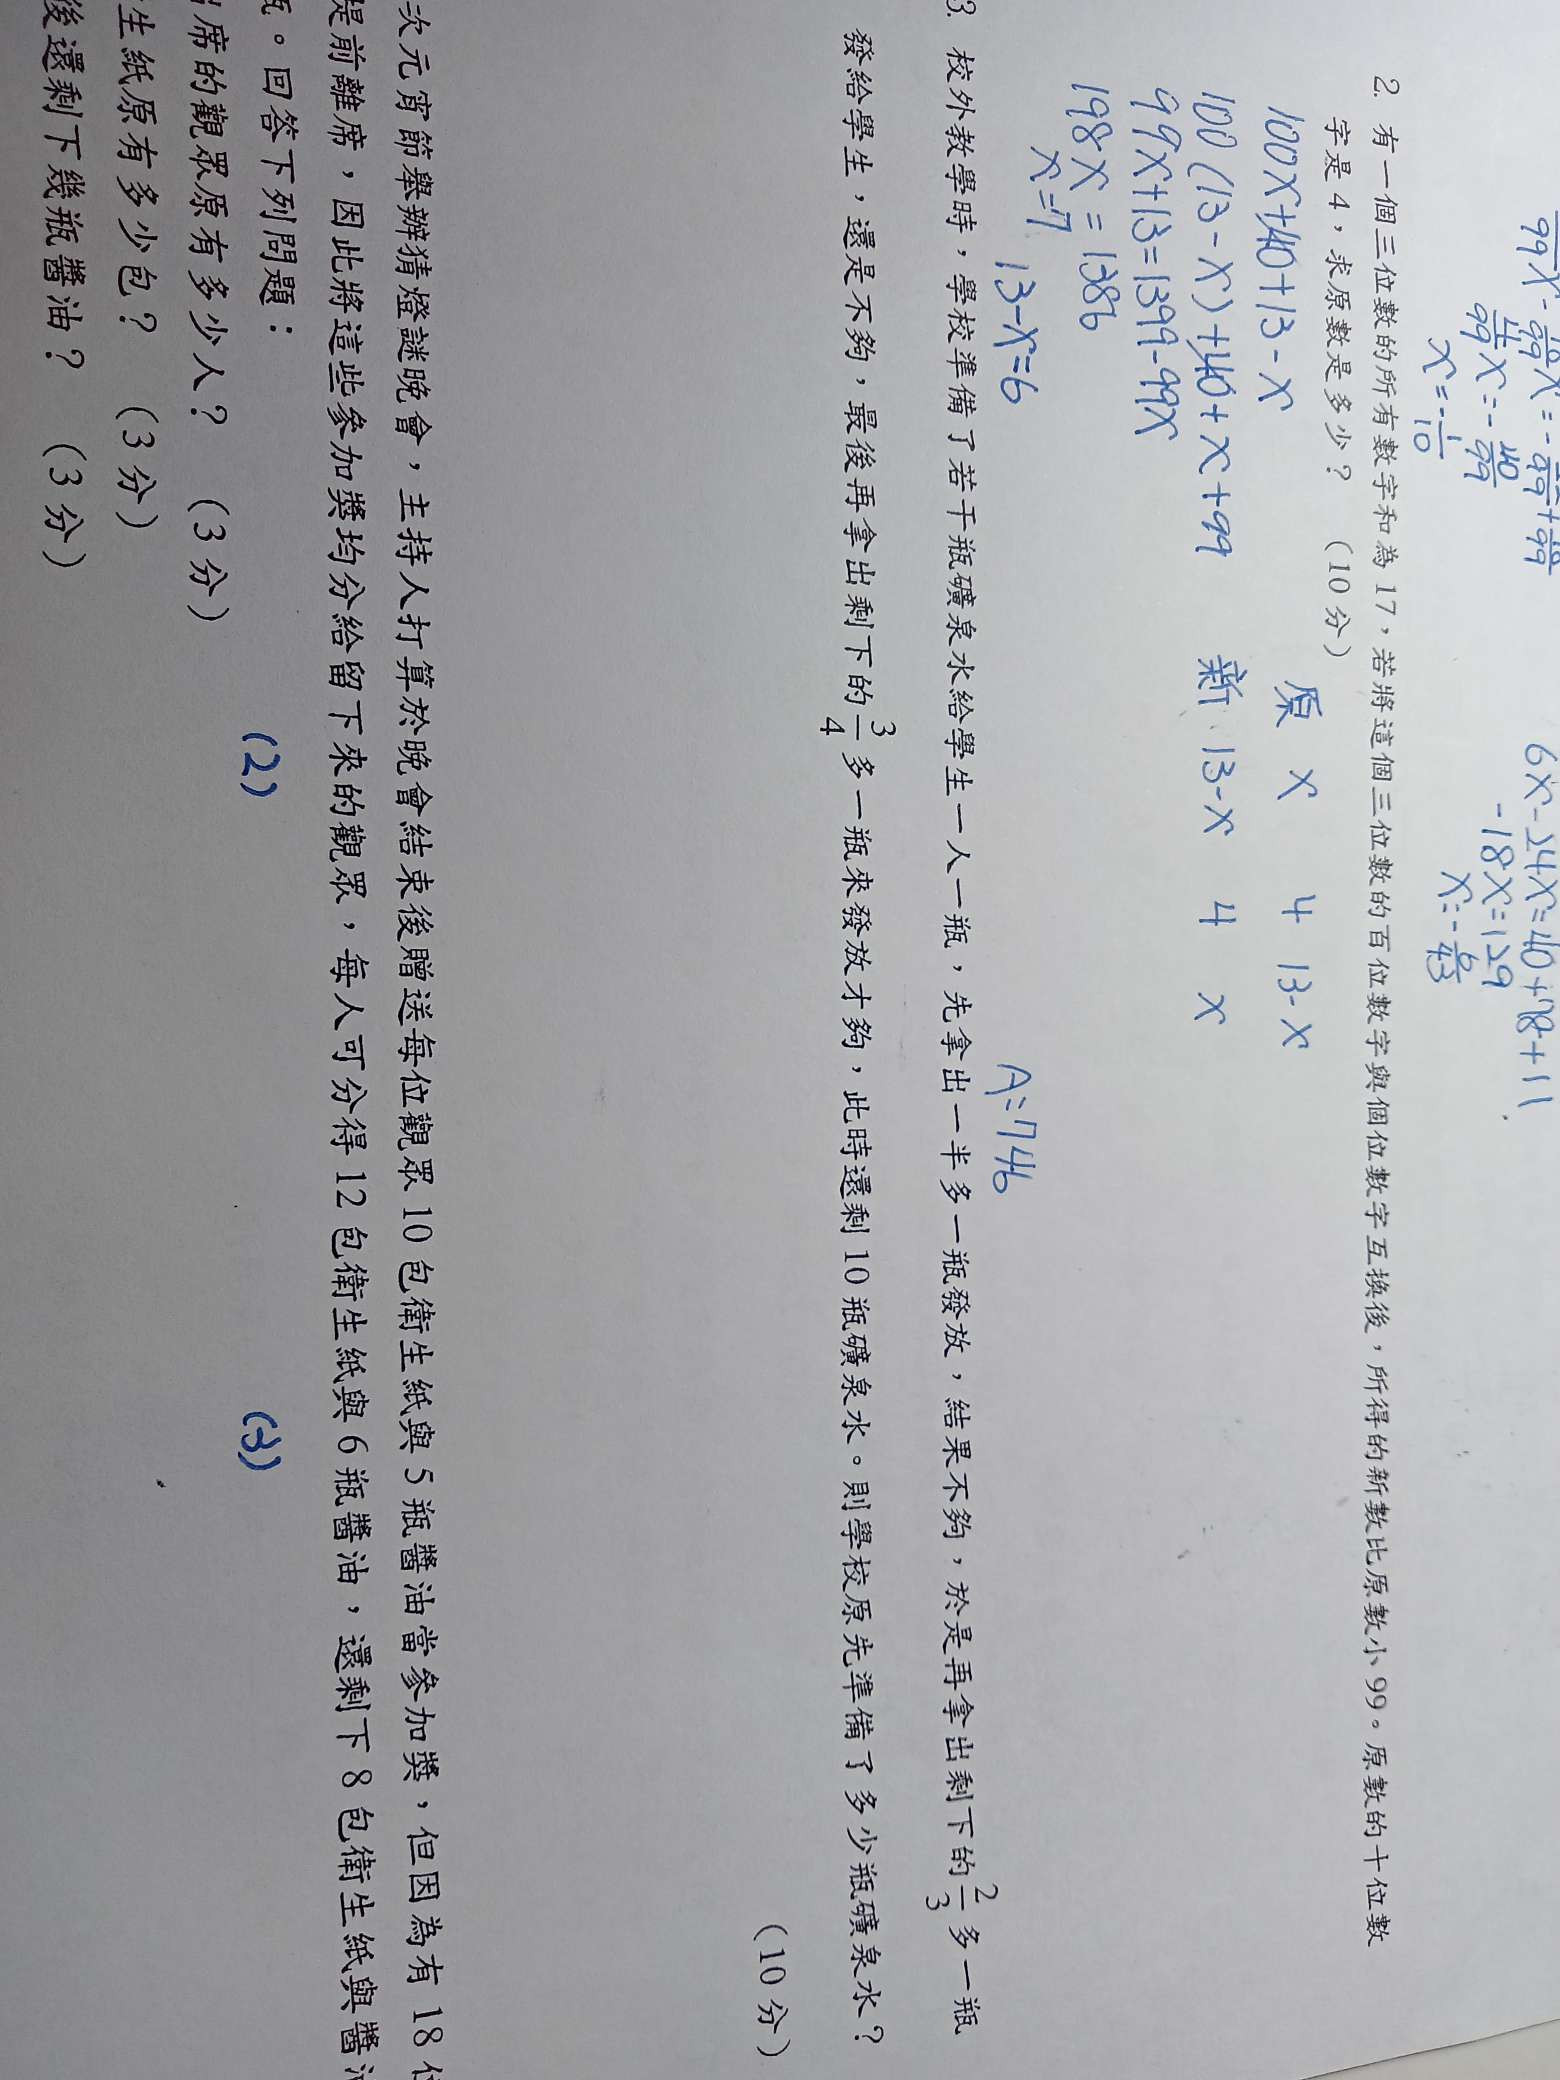 6x-24x=40+78+11
-18x=129
x=-
x=-1/10
2. 有一個三位數的所有數字和為 17,若將這個三位數的百位數字與個位數字互換後,所得的新數比原數小 99。原數的十位數
字是 4,求原數是多少?(10 分)
100x+40+13-x
原 x 4 13-x
100(13-x)+40+x+99
新 13-x 4 x
99x+13=1399-99x
198x=1386
x=7
13-x=6
A=746
3. 校外教學時,學校準備了若干瓶礦泉水給學生一人一瓶,先拿出一半多一瓶發放,結果不夠,於是再拿出剩下的 2/3 多一瓶
發給學生,還是不夠,最後再拿出剩下的 3/4 多一瓶來發放才夠,此時還剩 10 瓶礦泉水。則學校原先準備了多少瓶礦泉水?
(10 分)
次元宵節舉辦猜燈謎晚會,主持人打算於晚會結束後贈送每位觀眾 10 包衛生紙與 5 瓶醬油當參加獎,但因為有 18 位
提前離席,因此將這些參加獎均分給留下來的觀眾,每人可分得 12 包衛生紙與 6 瓶醬油,還剩下 8 包衛生紙與醬
瓶。回答下列問題:
(2)
(3)
席的觀眾原有多少人?(3 分)
生紙原有多少包?(3 分)
後還剩下幾瓶醬油?(3 分)